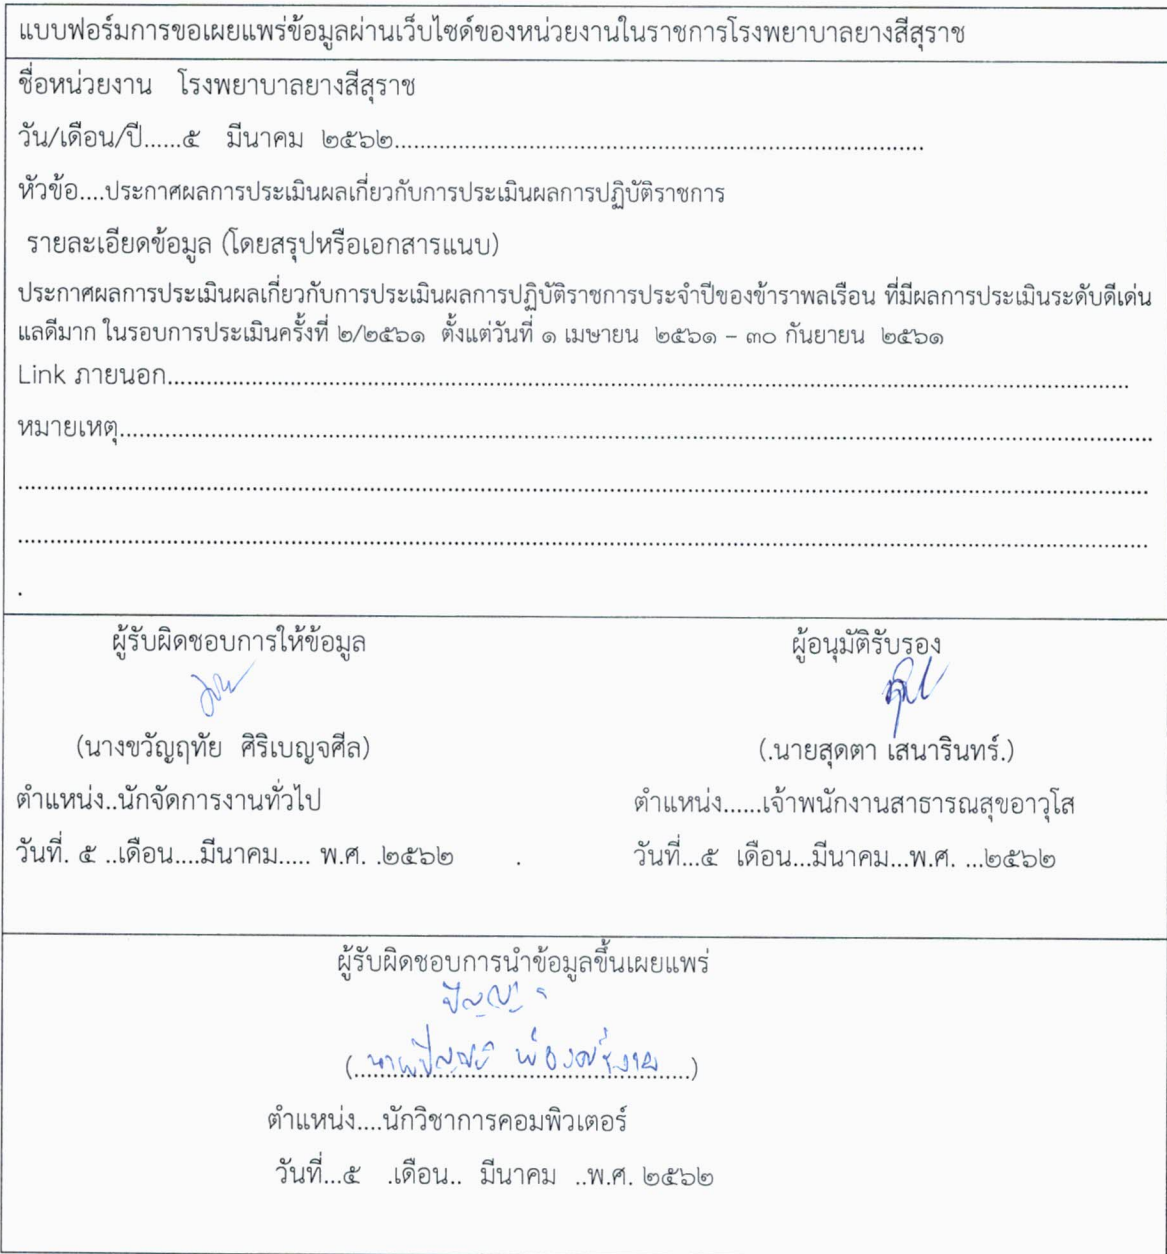 แบบฟอร์มการขอเผยแพร่ข้อมูลผ่านเว็บไซต์ของหน่วยงานในราชการโรงพยาบาลยางสีสุราช
ชื่อหน่วยงาน โรงพยาบาลยางสีสุราช
วัน/เดือน/ปี......๕ มีนาคม ๒๕๖๒...................................................................................
หัวข้อ....ประกาศผลการประเมินผลเกี่ยวกับการประเมินผลการปฏิบัติราชการ
รายละเอียดข้อมูล (โดยสรุปหรือเอกสารแนบ)
ประกาศผลการประเมินผลเกี่ยวกับการประเมินผลการปฏิบัติราชการประจำปีของข้าราพลเรือน ที่มีผลการประเมินระดับดีเด่น
แลดีมาก ในรอบการประเมินครั้งที่ ๒/๒๕๖๑ ตั้งแต่วันที่ ๑ เมษายน ๒๕๖๑ – ๓๐ กันยายน ๒๕๖๑
Link ภายนอก....................................................................................................
หมายเหตุ....................................................................................................
ผู้รับผิดชอบการให้ข้อมูล
(นางขวัญฤทัย ศิริเบญจศีล)
ตำแหน่ง..นักจัดการงานทั่วไป
วันที่. ๕ ..เดือน....มีนาคม..... พ.ศ. .๒๕๖๒ .
ผู้อนุมัติรับรอง
(.นายสุดตา เสนารินทร์.)
ตำแหน่ง......เจ้าพนักงานสาธารณสุขอาวุโส
วันที่...๕ เดือน...มีนาคม...พ.ศ. ...๒๕๖๒
ผู้รับผิดชอบการนำข้อมูลขึ้นเผยแพร่
ตำแหน่ง....นักวิชาการคอมพิวเตอร์
วันที่...๕ .เดือน.. มีนาคม ..พ.ศ. ๒๕๖๒